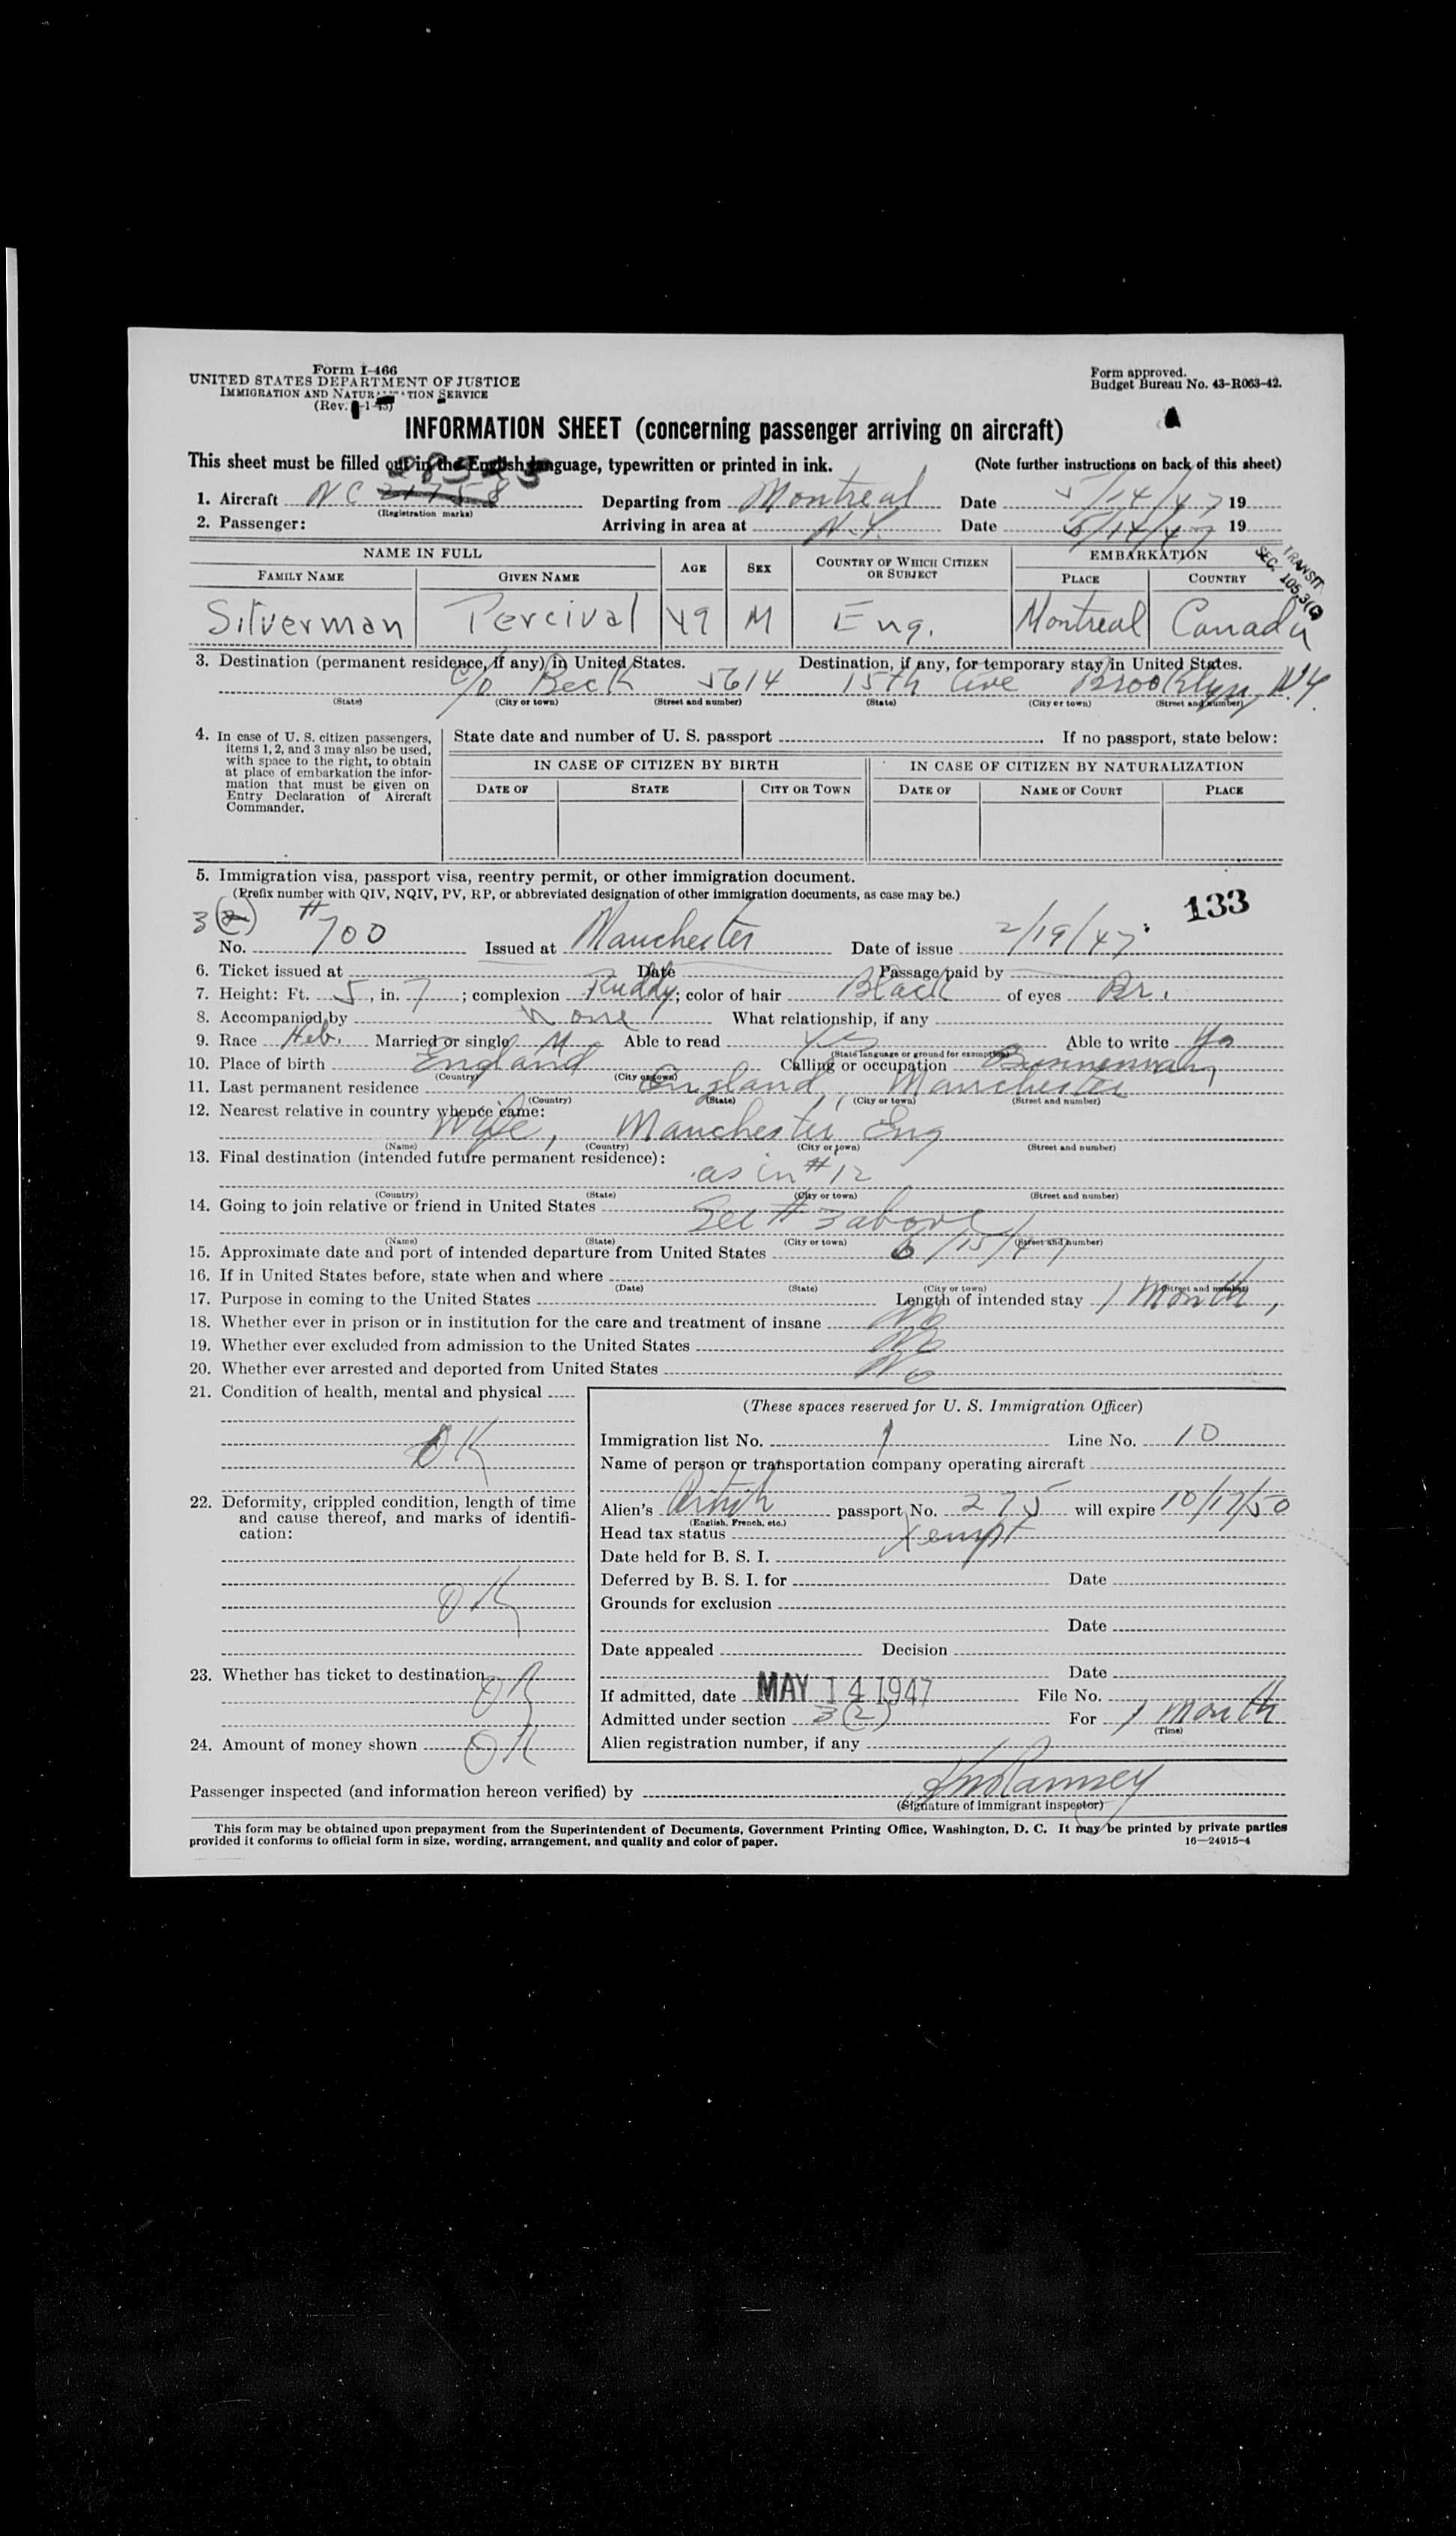 Form I-466
UNITED STATES DEPARTMENT OF JUSTICE
IMMIGRATION AND NATURALIZATION SERVICE
(Rev. -1-45)
Form approved.
Budget Bureau No. 43-R063-42.
INFORMATION SHEET (concerning passenger arriving on aircraft)
This sheet must be filled out in the English language, typewritten or printed in ink. (Note further instructions on back of this sheet)
1. Aircraft NC 21758 Departing from Montreal Date 5/14/47 19
(Registration marks)
2. Passenger: Arriving in area at N.Y. Date 5/14/47 19
NAME IN FULL AGE SEX COUNTRY OF WHICH CITIZEN OR SUBJECT EMBARKATION
FAMILY NAME GIVEN NAME PLACE COUNTRY
TRANSIT
SEC. 105.3(
Silverman Percival 49 M Eng. Montreal Canada
3. Destination (permanent residence, if any) in United States. Destination, if any, for temporary stay in United States.
c/o Beck 5614 15th Ave Brooklyn, N.Y.
(State) (City or town) (Street and number) (State) (City or town) (Street and number)
4. In case of U. S. citizen passengers, items 1, 2, and 3 may also be used, with space to the right, to obtain at place of embarkation the information that must be given on Entry Declaration of Aircraft Commander.
State date and number of U. S. passport If no passport, state below:
IN CASE OF CITIZEN BY BIRTH IN CASE OF CITIZEN BY NATURALIZATION
DATE OF STATE CITY OR TOWN DATE OF NAME OF COURT PLACE
5. Immigration visa, passport visa, reentry permit, or other immigration document.
(Prefix number with QIV, NQIV, PV, RP, or abbreviated designation of other immigration documents, as case may be.)
133
3(2)
No. #700 Issued at Manchester Date of issue 2/19/47
6. Ticket issued at Date Passage paid by
7. Height: Ft. 5, in. 7; complexion Ruddy; color of hair Black of eyes Br.
8. Accompanied by None What relationship, if any
9. Race Heb. Married or single M Able to read Yes Able to write Yes
(State language or ground for exemption)
10. Place of birth England Calling or occupation Businessman
(Country) (City or town)
11. Last permanent residence England, Manchester
(Country) (State) (City or town) (Street and number)
12. Nearest relative in country whence came:
Wife, Manchester Eng
(Name) (Country) (City or town) (Street and number)
13. Final destination (intended future permanent residence):
as in #12
(Country) (State) (City or town) (Street and number)
14. Going to join relative or friend in United States
See #3 above
(Name) (State) (City or town) (Street and number)
15. Approximate date and port of intended departure from United States 6/15/47
16. If in United States before, state when and where
(Date) (State) (City or town) (Street and number)
17. Purpose in coming to the United States Length of intended stay 1 Month,
18. Whether ever in prison or in institution for the care and treatment of insane No
19. Whether ever excluded from admission to the United States No
20. Whether ever arrested and deported from United States No
21. Condition of health, mental and physical
OK
22. Deformity, crippled condition, length of time and cause thereof, and marks of identification:
OK
23. Whether has ticket to destination OK
24. Amount of money shown OK
(These spaces reserved for U. S. Immigration Officer)
Immigration list No. 1 Line No. 10
Name of person or transportation company operating aircraft
Alien's British passport No. 275 will expire 10/17/50
(English, French, etc.)
Head tax status Xempt
Date held for B. S. I.
Deferred by B. S. I. for Date
Grounds for exclusion
Date
Date appealed Decision
Date
If admitted, date MAY 14 1947 File No.
Admitted under section 3(2) For 1 Month
(Time)
Alien registration number, if any
Passenger inspected (and information hereon verified) by Ramsey
(Signature of immigrant inspector)
This form may be obtained upon prepayment from the Superintendent of Documents, Government Printing Office, Washington, D. C. It may be printed by private parties
provided it conforms to official form in size, wording, arrangement, and quality and color of paper. 16—24915-4